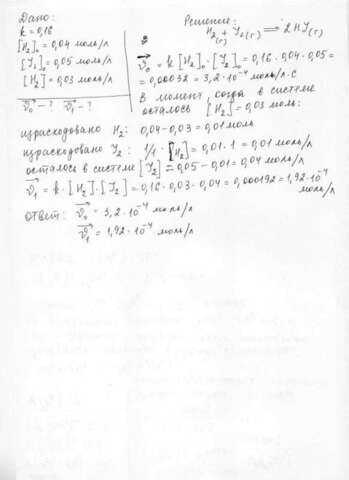 Дано:
k = 0,16
[H₂]₀ = 0,04 моль/л
[J₂]₀ = 0,05 моль/л
[H₂] = 0,03 моль/л
v₀ - ? v₁ - ?
Решение:
H₂(г) + J₂(г) = 2HJ(г)
v₀ = k [H₂]₀ · [J₂]₀ = 0,16 · 0,04 · 0,05 =
= 0,00032 = 3,2 · 10⁻⁴ моль/л·с
В момент, когда в системе
осталось [H₂] = 0,03 моль:
израсходовано H₂: 0,04 - 0,03 = 0,01 моль
израсходовано J₂: 1/1 · [H₂] = 0,01 · 1 = 0,01 моль/л
осталось в системе [J₂] = 0,05 - 0,01 = 0,04 моль/л
v₁ = k · [H₂] · [J₂] = 0,16 · 0,03 · 0,04 = 0,000192 = 1,92 · 10⁻⁴
моль/л
Ответ: v₀ = 3,2 · 10⁻⁴ моль/л
v₁ = 1,92 · 10⁻⁴ моль/л